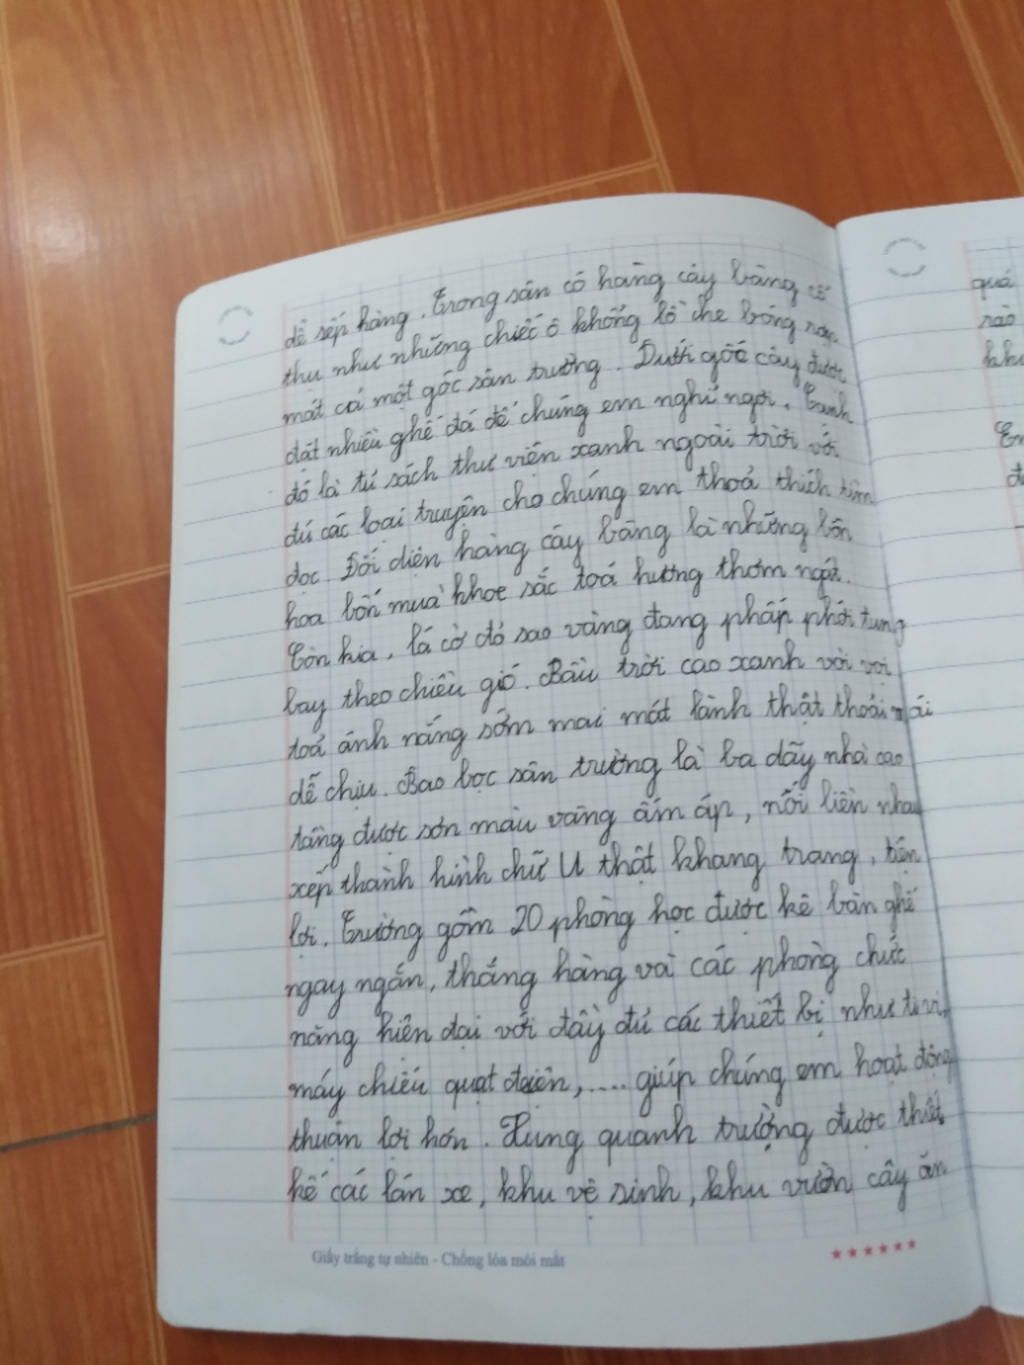 để xếp hàng. Trong sân có hàng cây bàng cổ
thụ như những chiếc ô khổng lồ che bóng râm
mát cả một góc sân trường. Dưới gốc cây được
đặt nhiều ghế đá để chúng em nghỉ ngơi. Cạnh
đó là tủ sách thư viện xanh ngoài trời với
đủ các loại truyện cho chúng em thoả thích tìm
đọc. Đối diện hàng cây bàng là những bồn
hoa bốn mùa khoe sắc toả hương thơm ngát.
Còn kia, lá cờ đỏ sao vàng đang phấp phới tung
bay theo chiều gió. Bầu trời cao xanh vời vợi
toả ánh nắng sớm mai mát lành thật thoải mái
dễ chịu. Bao bọc sân trường là ba dãy nhà cao
tầng được sơn màu vàng ấm áp, nối liền nhau
xếp thành hình chữ U thật khang trang, tiện
lợi. Trường gồm 20 phòng học được kê bàn ghế
ngay ngắn, thẳng hàng và các phòng chức
năng hiện đại với đầy đủ các thiết bị như ti vi,
máy chiếu quạt điện,.... giúp chúng em hoạt động
thuận lợi hơn. Xung quanh trường được thiết
kế các lán xe, khu vệ sinh, khu vườn cây ăn
Giấy trắng tự nhiên - Chống lóa mỏi mắt
quá
rào
khu
Em